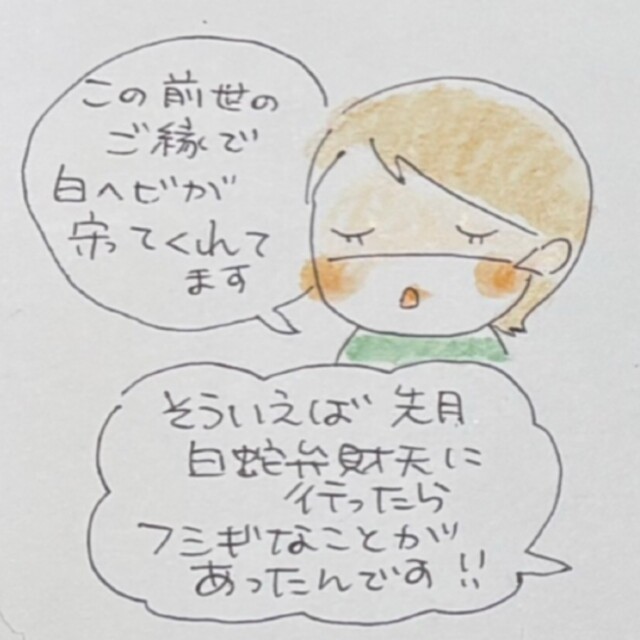 この前世の
ご縁で
白ヘビが
守ってくれて
ます
そういえば 先月
白蛇弁財天に
行ったら
フシギなことが
あったんです!!